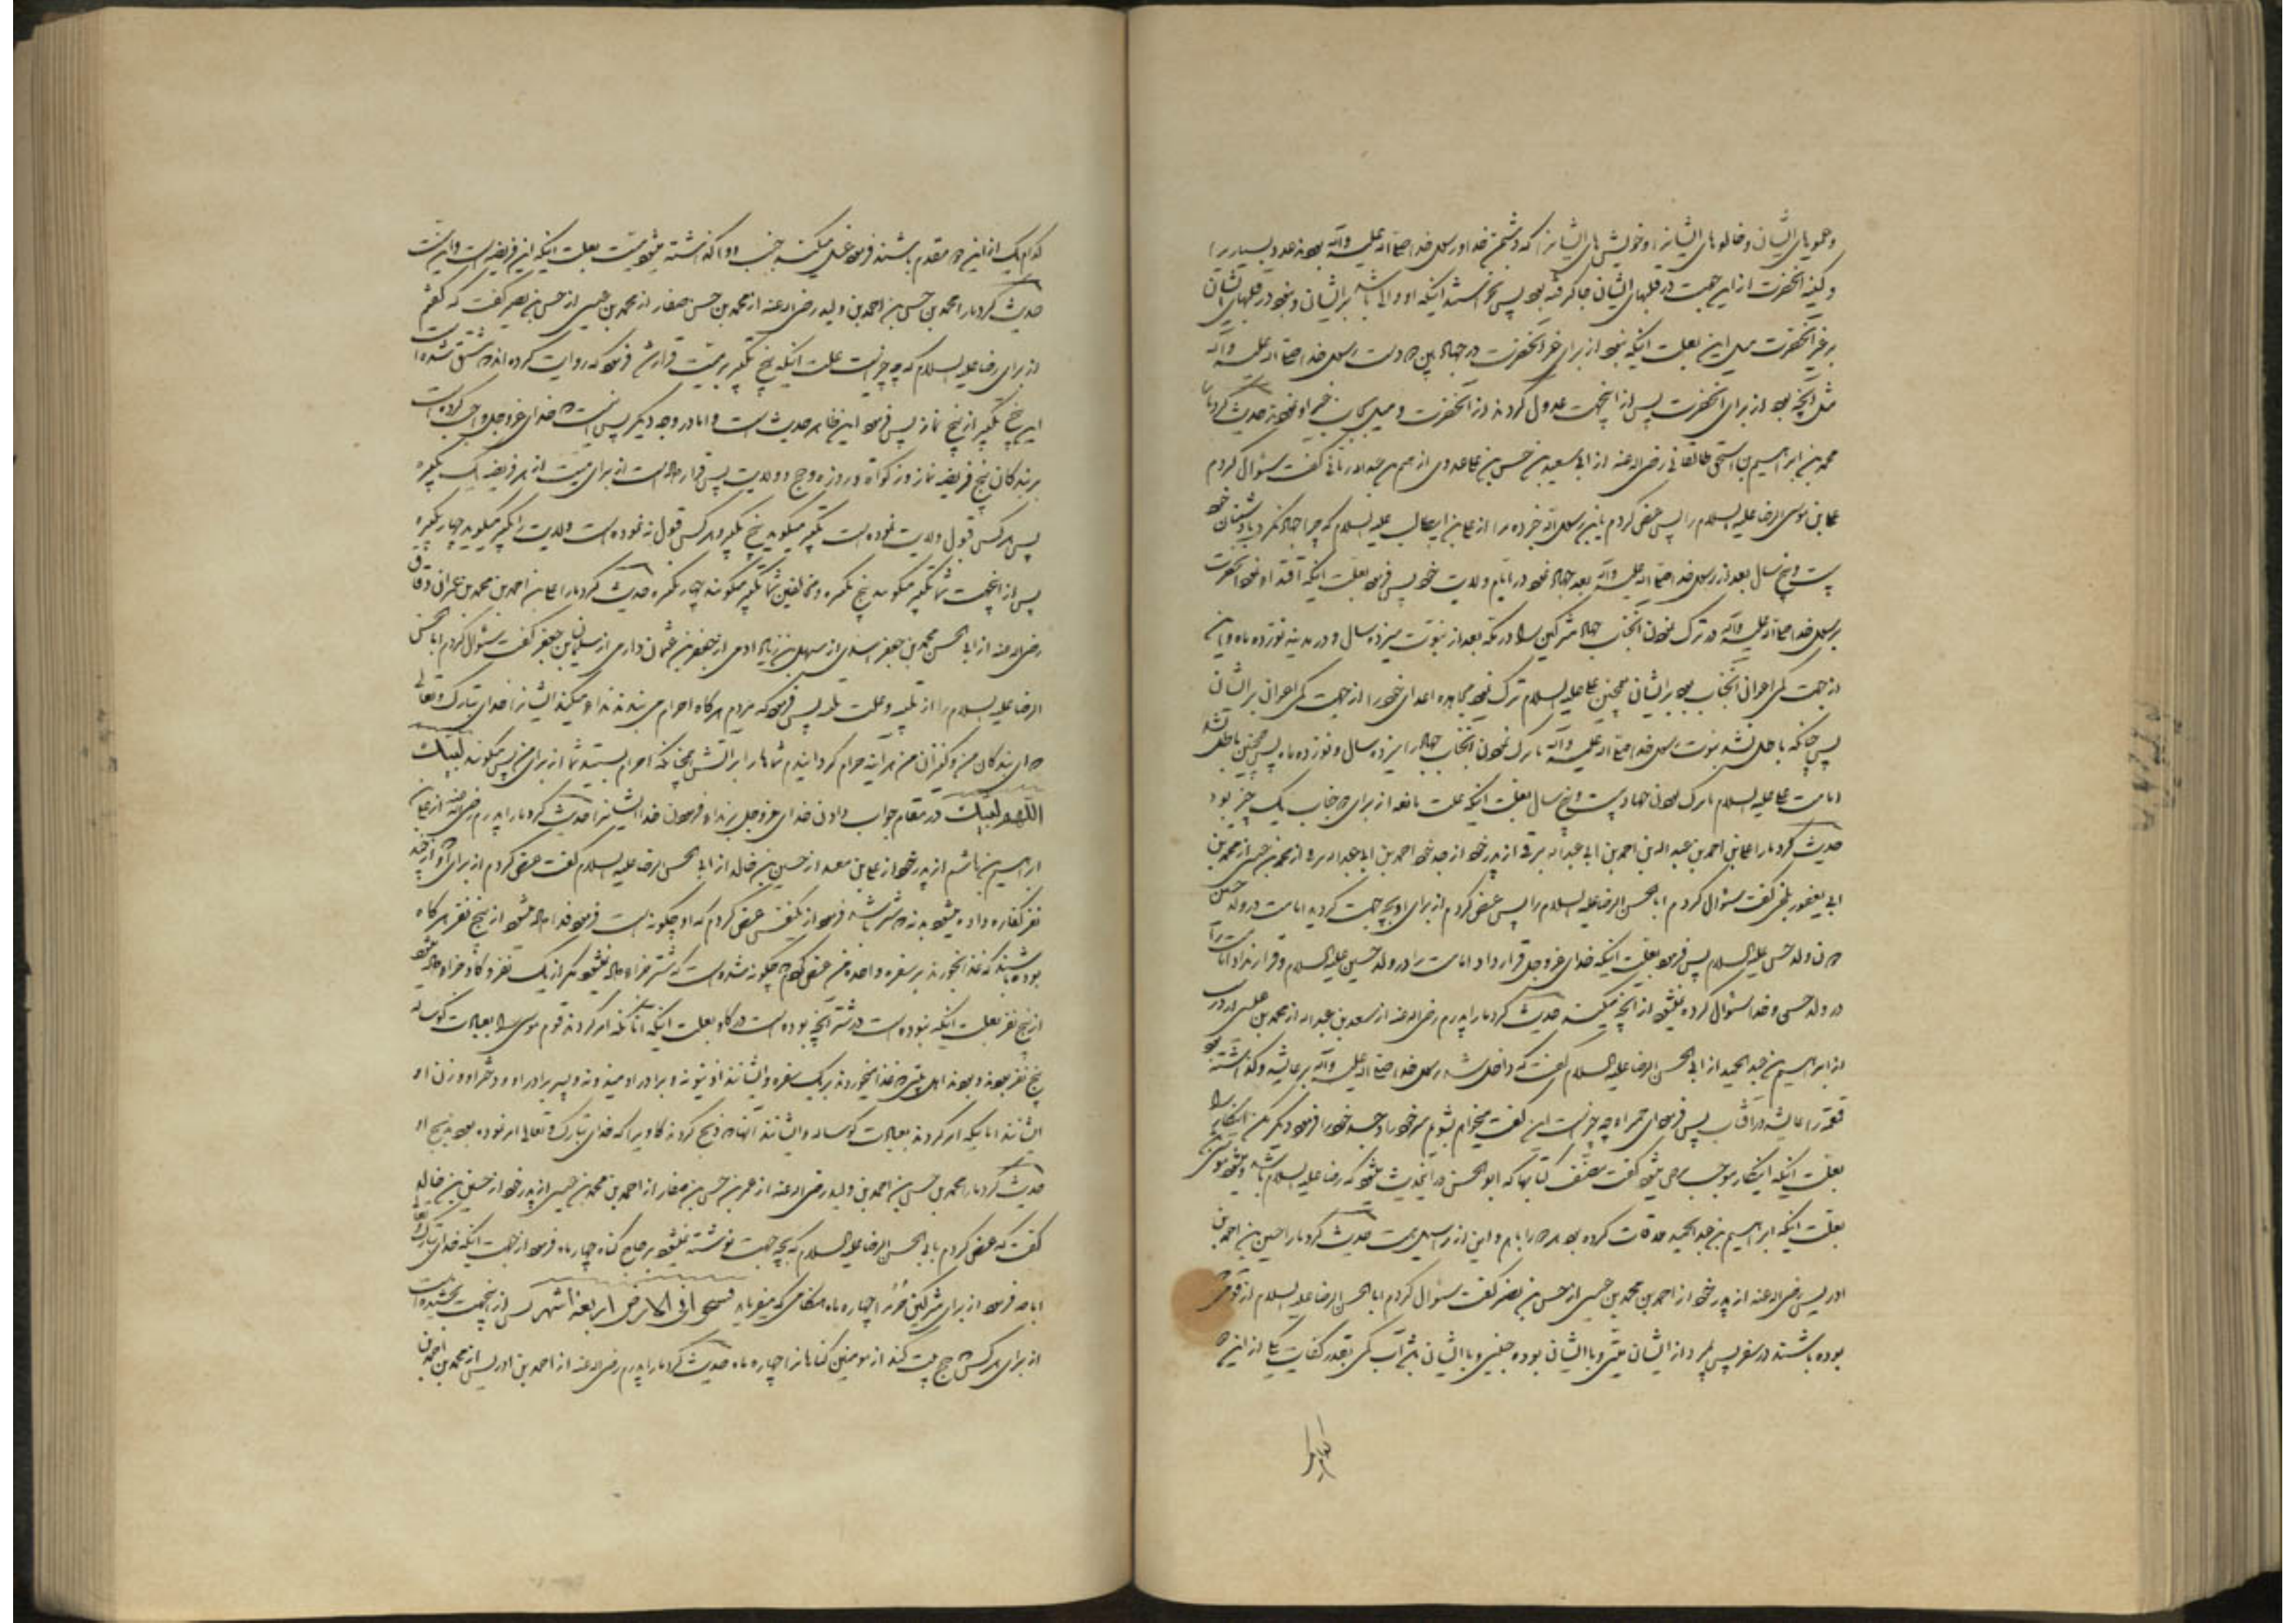 وعموهای ایشان و خالوهای ایشانرا و خویش های ایشانرا که دشمن خدا و رسول خدا صلی الله علیه وآله بودند عدد بسیاریرا
و کینه آنحضرت از این جهت در قلبهای ایشان جا گرفته بود پس نخواستند اینکه او والی باشد بر ایشان و نبود در قلبهای ایشان
بر غیر آنحضرت مثل این بعلت اینکه نبود از برای غیر آنحضرت در جهاد پیش دست رسول خدا صلی الله علیه وآله
مثل آنچه بود از برای آنحضرت پس از اینجهت عدول کردند از آنحضرت و میل بجانب غیر او نمودند حدیث کرد ما را
محمد بن ابراهیم بن اسحق طالقانی رضی الله عنه از ابی سعید حسن بن علی عدوی از هیثم بن عبدالله رمانی گفت سئوال کردم
علی بن موسی الرضا علیه السلام را پس عرض کردم یابن رسول الله خبر ده مرا از علی بن ابیطالب علیه السلام که چرا جهاد نکرد با دشمنان خود
بیست و پنج سال بعد از رسول خدا صلی الله علیه وآله بعد جهاد نمود در ایام ولایت خود پس فرمود بعلت اینکه اقتدا نمود آنحضرت
برسول خدا صلی الله علیه وآله در ترک نمودن آنجناب جهاد مشرکین را در مکه بعد از نبوت سیزده سال و در مدینه نوزده ماه و این
از جهت کمی اعوان آنجناب بود بر ایشان همچنین علی علیه السلام ترک نمود مجاهده اعدای خود را از جهت کمی اعوان بر ایشان
پس چنانکه باطل نشد نبوت رسول خدا صلی الله علیه وآله با ترک نمودن آنجناب جهاد را سیزده سال و نوزده ماه پس همچنین باطل نشد
امامت علی علیه السلام با ترک نمودن جهاد بیست و پنج سال بعلت اینکه علت مانعه از برای دو جناب یک چیز بود
حدیث کرد ما را علی بن احمد بن عبدالله بن احمد بن ابی عبدالله برقی از پدر خود از جد خود احمد بن ابی عبدالله برقی از محمد بن عیسی از محمد بن
ابی یعقوب بلخی گفت سئوال کردم ابا الحسن الرضا علیه السلام را پس عرض کردم از برای او بچه جهت گردید امامت در ولد حسین
دون ولد حسن علیه السلام پس فرمود بعلت اینکه خدای عزوجل قرار داد امامت را در ولد حسین علیه السلام و قرار نداد امامت را
در ولد حسن و خدا سئوال کرده نمیشود از آنچه میکند حدیث کرد ما را پدرم رضی الله عنه از سعد بن عبدالله از محمد بن عیسی از درست
از ابراهیم بن عبدالحمید از ابی الحسن الرضا علیه السلام گفت که داخل شد رسول خدا صلی الله علیه وآله بر عایشه و گذاشته بود
قمقمه را عایشه در آفتاب پس فرمود ای حمیراء چه چیز است این گفت میخواهم بشویم سر خود را و جسد خود را فرمود دیگر مکن اینکار را
بعلت اینکه اینکار موجب برص میشود گفت مصنف کتاب که ابوالحسن در اینحدیث میشود که رضا علیه السلام باشد و میشود موسی
بعلت اینکه ابراهیم بن عبدالحمید ملاقات کرده بود هر دو امام و این از مراسیل است حدیث کرد ما را حسین بن احمد بن
ادریس رضی الله عنه از پدر خود از احمد بن محمد بن عیسی از حسن بن نضر گفت سئوال کردم ابا الحسن الرضا علیه السلام از قومی
بوده باشند در سفر پس بمیرد از ایشان میتی و با ایشان بوده جنبی و با ایشان باشد آب کمی بقدر کفایت یکی از این دو
کدام یک
کدام یک از این دو مقدم باشند فرمود غسل میکند جنب و واگذاشته میشود میت بعلت اینکه این فریضه است و این سنت
حدیث کرد ما را محمد بن حسن بن احمد بن ولید رضی الله عنه از محمد بن حسن صفار از محمد بن عیسی از حسن بن نضر گفت که گفتم
از برای رضا علیه السلام که چه چیز است علت اینکه پنج تکبیر بر میت قرار شد فرمود که روایت کرده اند که مشتق شده است
این پنج تکبیر از پنج نماز پس فرمود این ظاهر حدیث است و اما در وجه دیگر پس اینست که خدای عزوجل واجب کرده است
بر بندگان پنج فریضه نماز و زکوة و روزه و حج و ولایت پس قرار داده است از برای میت از هر فریضه یک تکبیره
پس هر کس قبول ولایت نموده است تکبیر میگوید پنج تکبیر و هر کس قبول ننموده است ولایت را تکبیر میگوید چهار تکبیره
پس از اینجهت شما تکبیر میگوئید پنج تکبیره و مخالفین شما تکبیر میگویند چهار تکبیره حدیث کرد ما را علی بن احمد بن محمد بن عمرانی دقاق
رضی الله عنه از ابی الحسن محمد بن جعفر اسدی از سهل بن زیاد ادمی از جعفر بن عثمان دارمی از سلیمان بن جعفر گفت سئوال کردم ابا الحسن
الرضا علیه السلام را از تلبیه و علت تلبیه پس فرمود که مردم هرگاه احرام می بندند ندا میکند ایشانرا خدای تبارک و تعالی
که ای بندگان من و کنیزان من هر آینه حرام گردانیدم شماها را بر آتش همچنانکه احرام بستید شما از برای من پس میگویند لبیک
اللهم لبیک در مقام جواب دادن خدای عزوجل بر ندا فرمودن خدا ایشانرا حدیث کرد ما را پدرم رضی الله عنه از علی بن
ابراهیم بن هاشم از پدر خود از علی بن معبد از حسین بن خالد از ابی الحسن الرضا علیه السلام گفت عرض کردم از برای او از چند
نفر کفاره داده میشود بدنه که شتر باشد فرمود از یکنفس عرض کردم گاو چگونه است فرمود فدا داده میشود از پنج نفر هرگاه
بوده باشند که غذا بخورند بر سفره واحده من عرض کردم چگونه شده است که شتر جزاء داده نمیشود مگر از یک نفر و گاو جزاء داده میشود
از پنج نفر بعلت اینکه نبوده است در شتر آنچه بوده است در گاو بعلت اینکه آنانکه امر کردند قوم موسی را بعبادت گوساله
پنج نفر بودند و بودند اهل بیتی که غذا میخوردند بر یک سفره و ایشانند اذینونه و برادر او میذونه و پسر برادر او و دختر او و زن او
ایشانند آنانیکه امر کردند بعبادت گوساله و ایشانند آنها که ذبح کردند گاویرا که خدای تبارک و تعالی امر نموده بود بذبح او
حدیث کرد ما را محمد بن حسن بن احمد بن ولید رضی الله عنه از محمد بن حسن صفار از احمد بن محمد بن عیسی از پدر خود از حسین بن خالد
گفت که عرض کردم بابی الحسن الرضا علیه السلام که بچه جهت نوشته نمیشود بر حاج گناه چهار ماه فرمود از جهت اینکه خدای تبارک و تعالی
اباحه فرمود از برای مشرکین حرم را چهار ماه هنگامی که میفرماید فسیحوا فی الارض اربعة اشهر پس از اینجهت بخشیده است
از برای هر کس که حج بیت کند از مؤمنین گناهانرا چهار ماه حدیث کرد ما را پدرم رضی الله عنه از احمد بن ادریس از محمد بن احمد بن